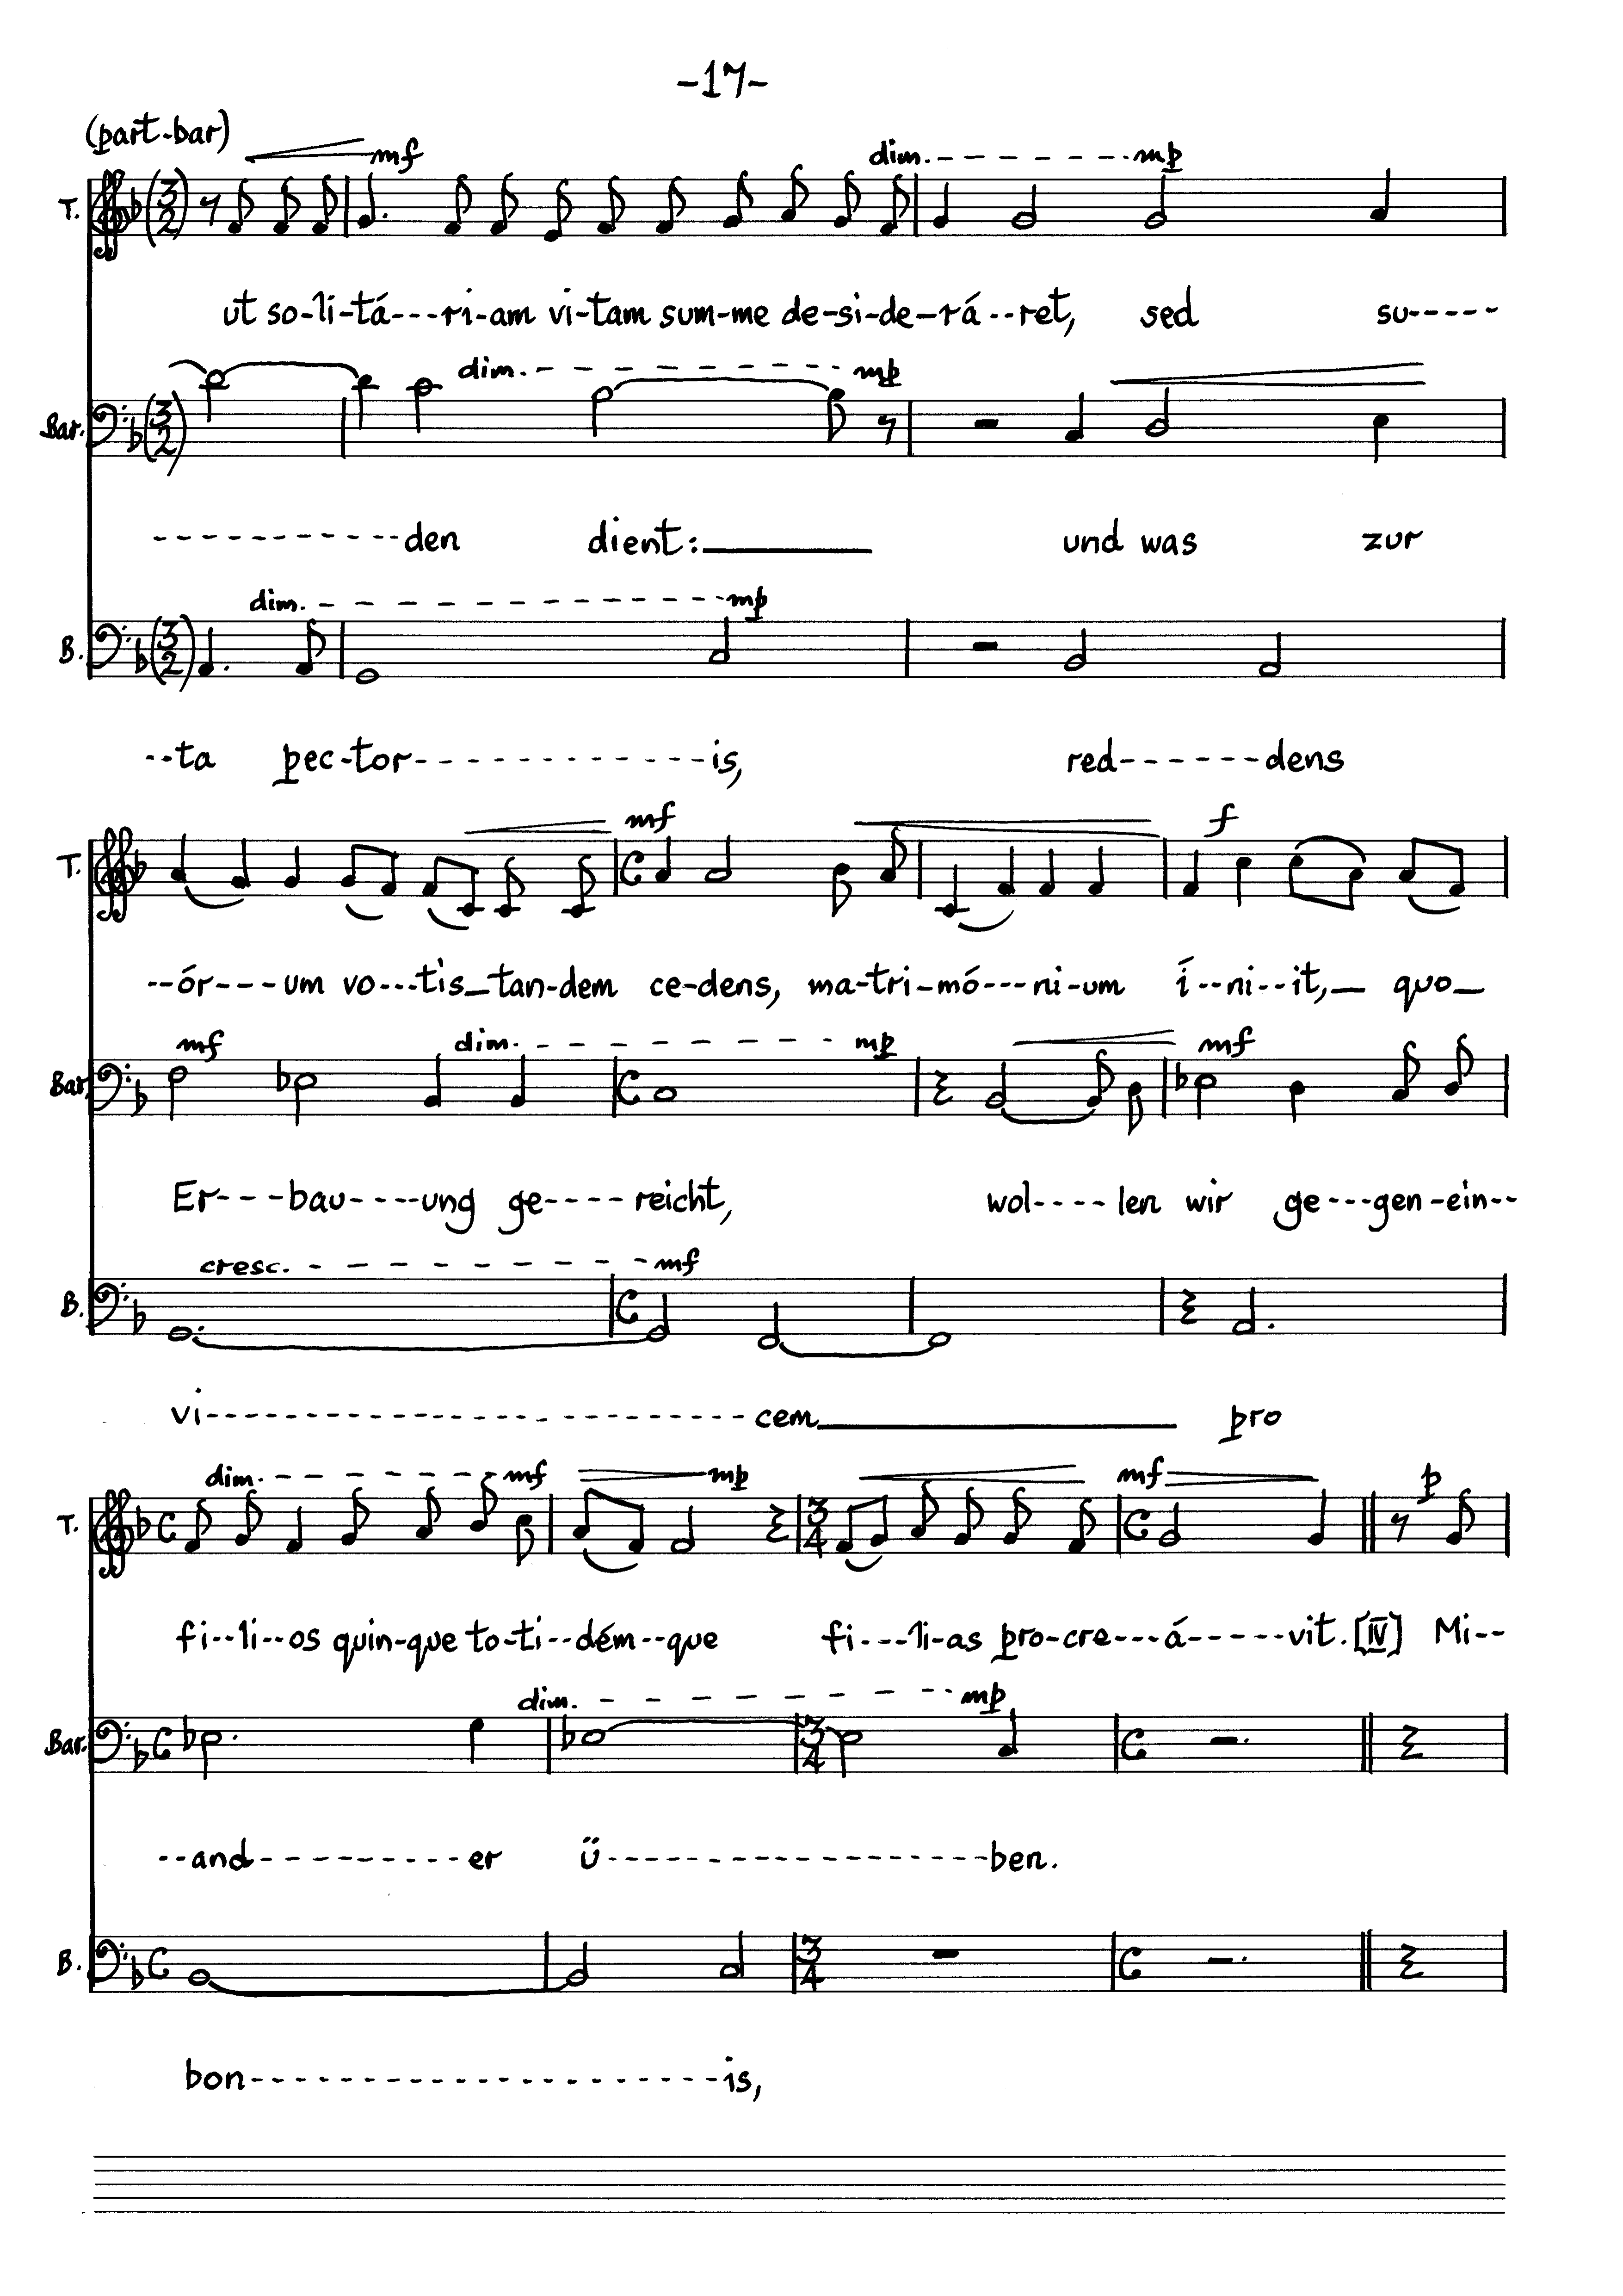 -17-
(part-bar)
mf dim. mp
T. (3/2)
ut so-li-tá---ri-am vi-tam sum-me de-si-de-rá--ret, sed su-----
dim. mp
Bar. (3/2)
-----------den dient: und was zur
dim. mp
B. (3/2)
--ta pec-tor-------------is, red------dens
mf f
T. C
--ór---um vo---tis_tan-dem ce-dens, ma-tri-mó---ni-um í--ni--it,_ quo_
mf dim. mp mf
Bar. C
Er---bau----ung ge----reicht, wol----len wir ge---gen-ein--
cresc. mf
B. C
vi-----------------------cem pro
dim. mf mp mf p
T. C 3/4 C
fi--li--os quin-que to-ti--dém--que fi---li-as pro-cre---á-----vit. [IV] Mi--
dim. mp
Bar. C 3/4 C
--and---------er ü-----------------ben.
B. C 3/4 C
bon---------------------is,